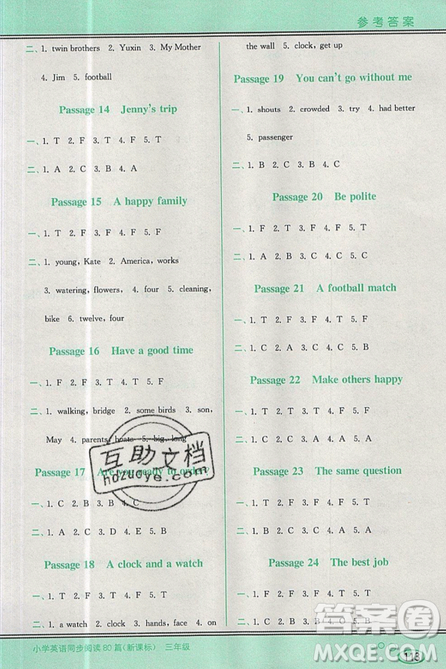 参考答案
二、1. twin brothers 2. Yuxin 3. My Mother
4. Jim 5. football
Passage 14 Jenny's trip
一、1. T 2. F 3. T 4. F 5. T
二、1. A 2. C 3. A 4. C
Passage 15 A happy family
一、1. T 2. F 3. F 4. F 5. T
二、1. young, Kate 2. America, works
3. watering, flowers, 4. four 5. cleaning,
bike 6. twelve, four
Passage 16 Have a good time
一、1. F 2. F 3. T 4. T 5. F
二、1. walking, bridge 2. some birds 3. son,
May 4. parents, boats 5. big, long
Passage 17 Are you ready to order
一、1. C 2. B 3. D 4. B
二、1. A 2. C 3. D 4. E 5. B
Passage 18 A clock and a watch
一、1. F 2. T 3. F 4. T 5. F
二、1. a watch 2. hands, face 3. a clock 4. on
the wall 5. clock, get up
Passage 19 You can't go without me
一、1. shouts 2. crowded 3. try 4. had better
5. passenger
二、1. B 2. C 3. B 4. C
Passage 20 Be polite
一、1. F 2. T 3. F 4. T 5. T
二、1. B 2. D 3. A 4. C
Passage 21 A football match
一、1. T 2.
二、1. C 2.
Passage 22 Make others happy
一、1. F 2.
Passage 23 The same question
一、1. T 2. F 3. F 4. F 5. T
Passage 24 The best job
小学英语同步阅读80篇(新课标) 三年级
互助文档
hozuoye.com
答案圈
MXQE.COM